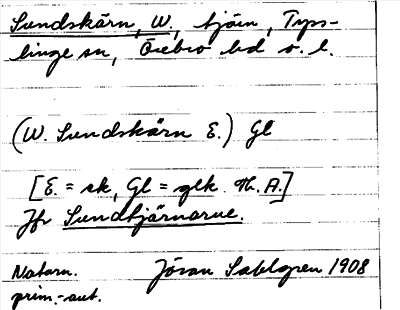 Sundskärn, W., tjärn, Tyss-
linge sn, Örebro hd o. l.
(W. Sundskärn E.) Gl
[E. = sk, Gl = glk. Th. A.]
Jfr Sundtjärnarne.
Natarn. Jöran Sahlgren 1908
prim.-aut.